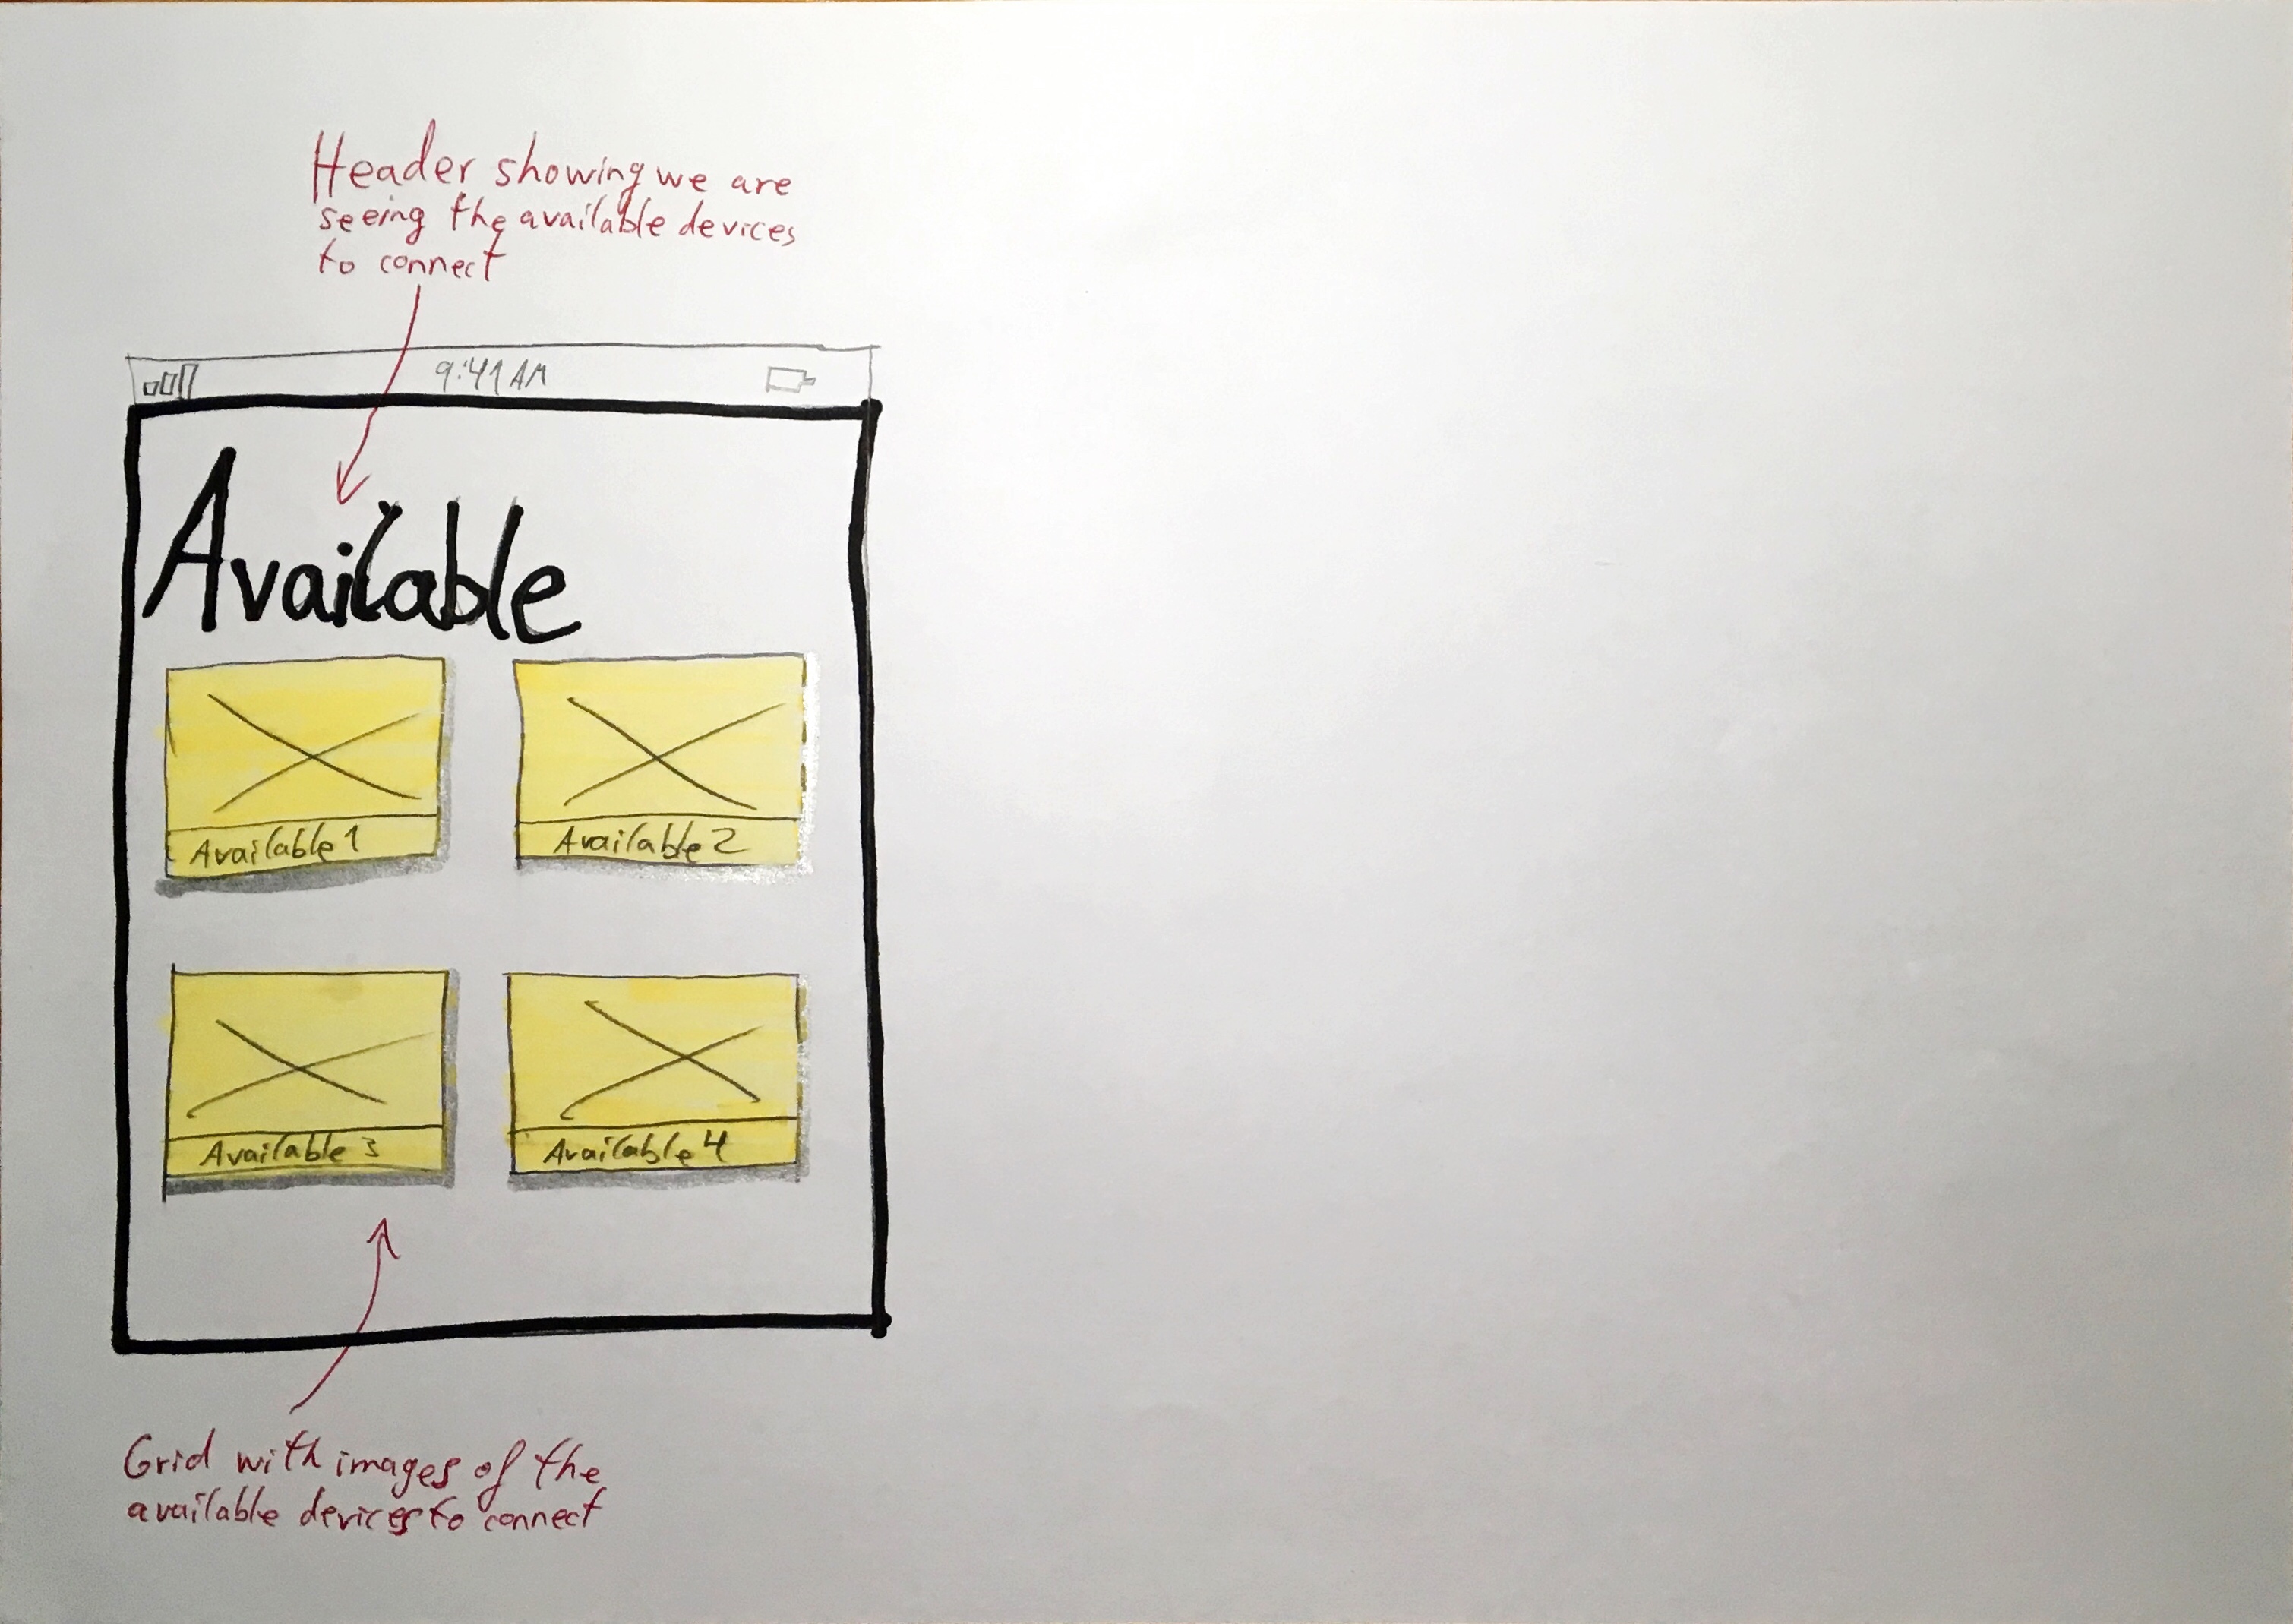 Header showing we are
seeing the available devices
to connect
9:41 AM
Available
Available 1
Available 2
Available 3
Available 4
Grid with images of the
available devices to connect